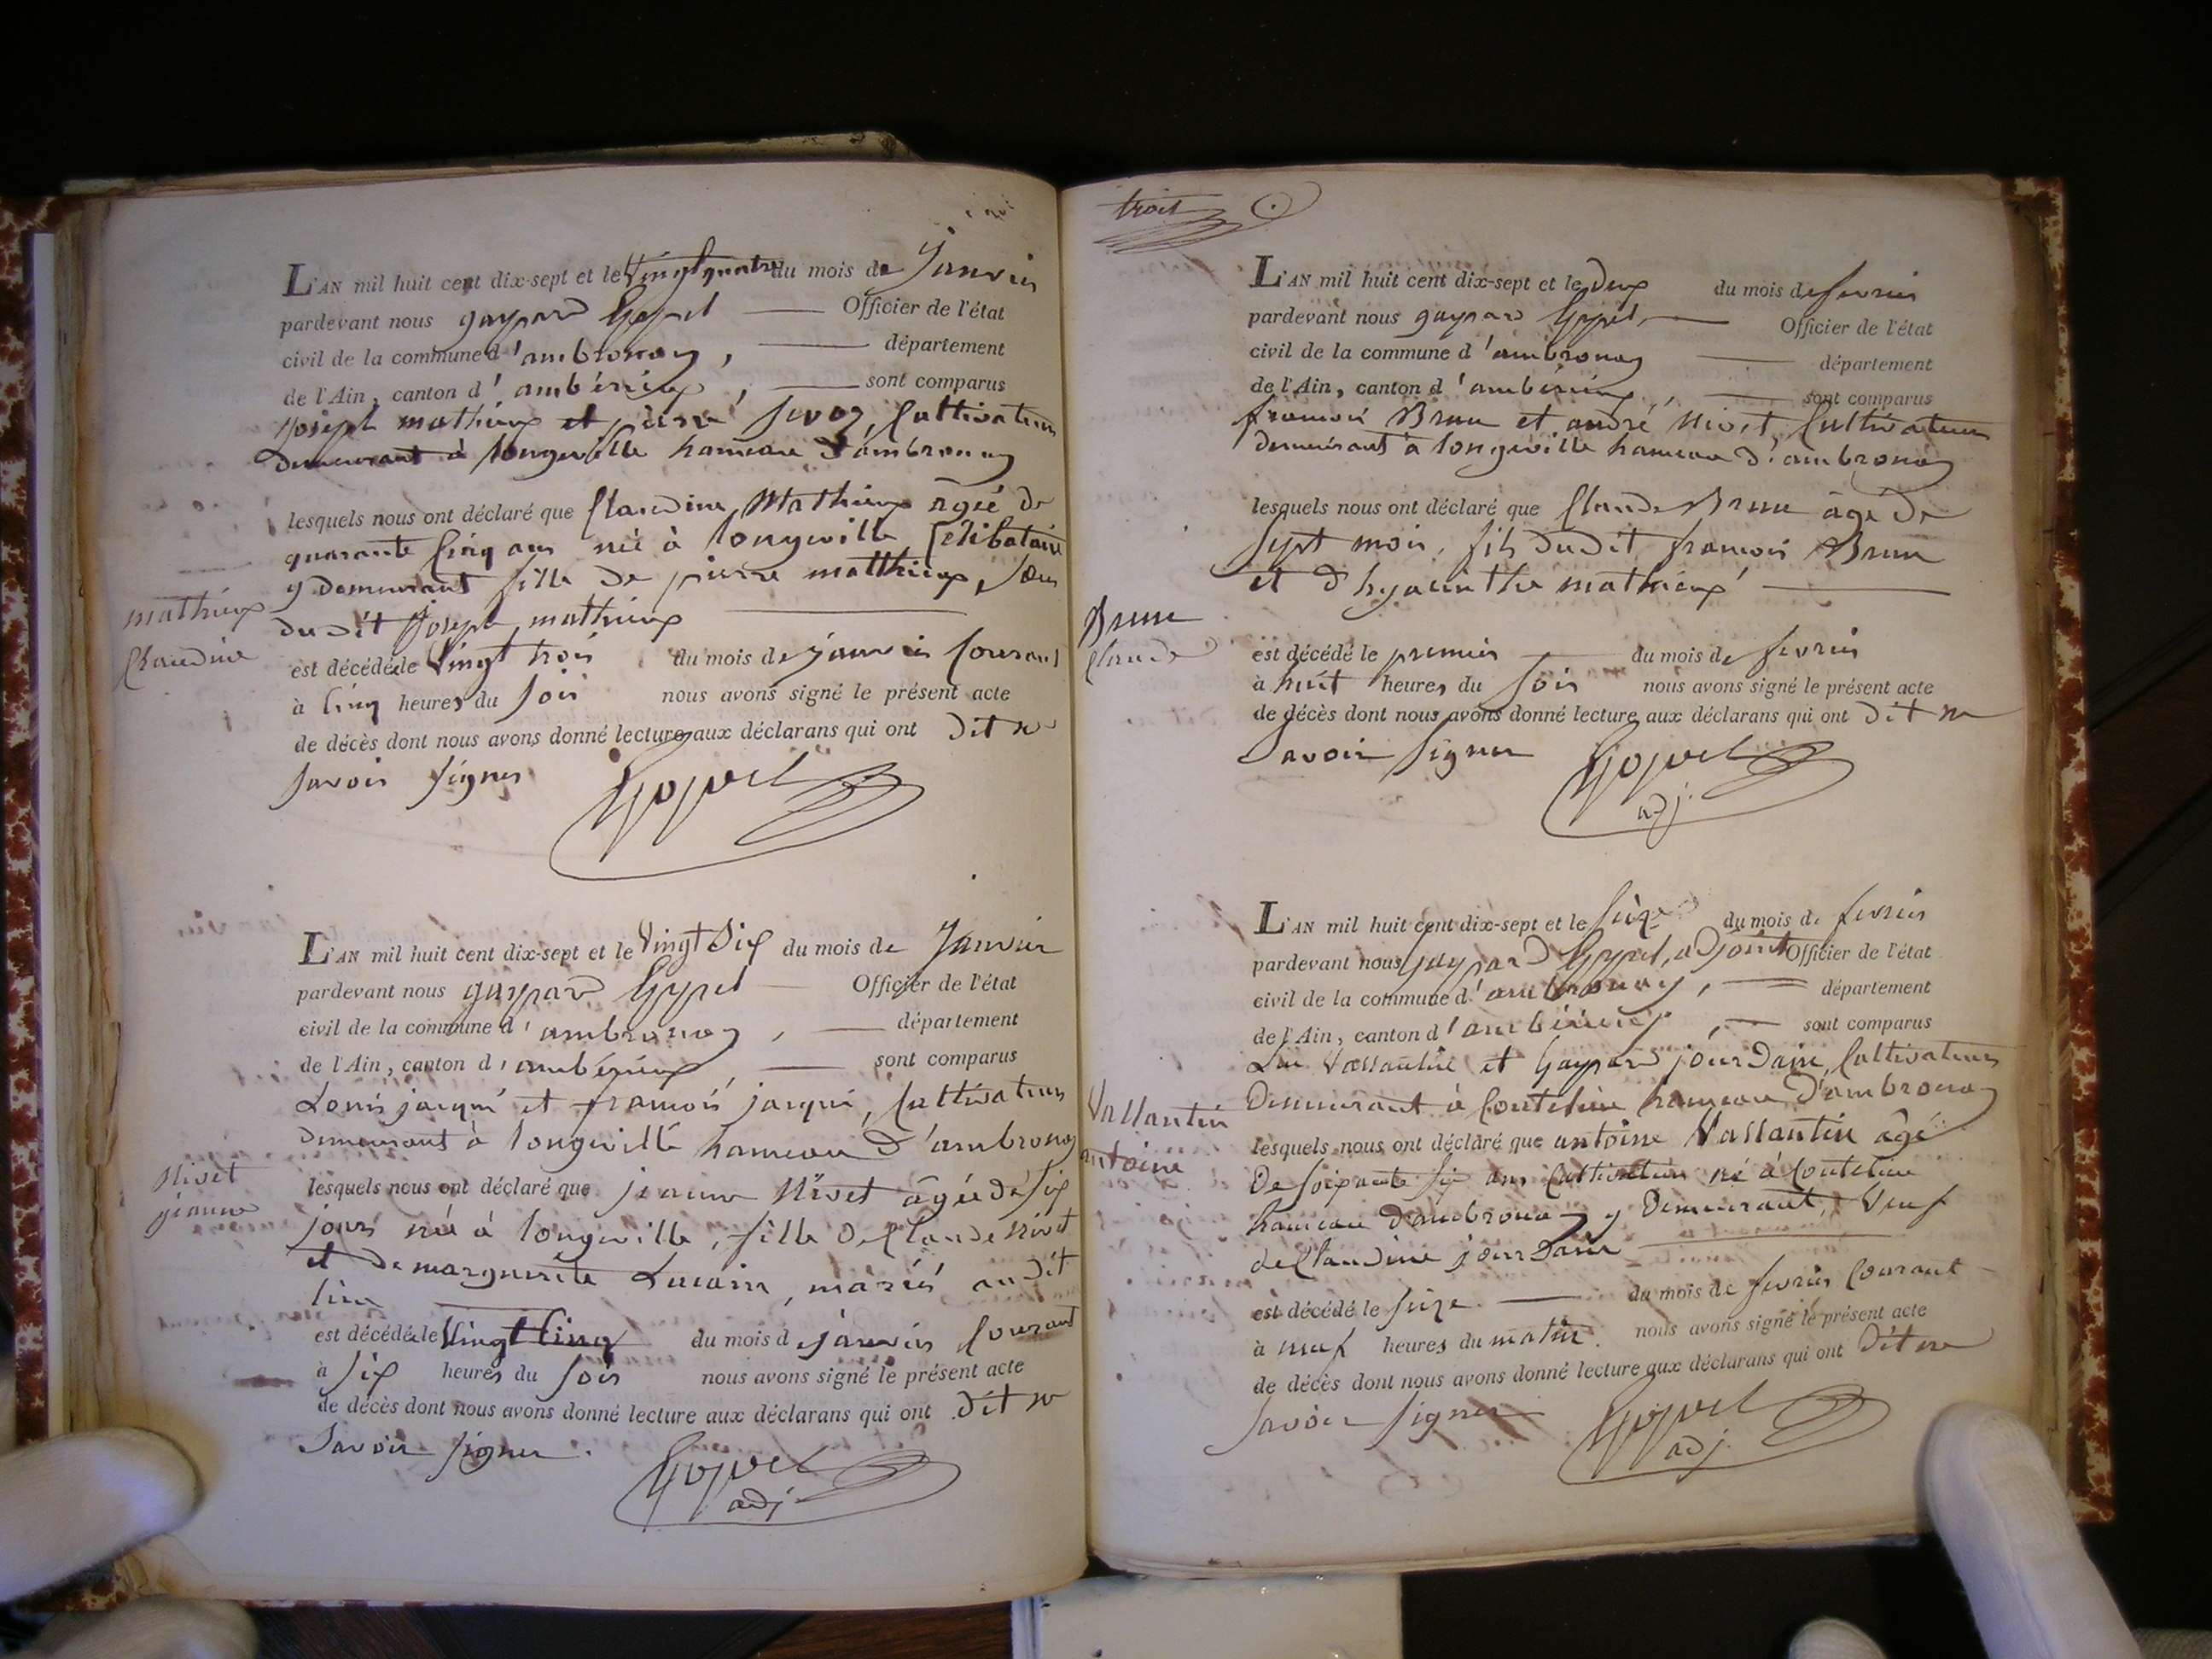 L'AN mil huit cent dix-sept et le Vingt quatre du mois de Janvier
pardevant nous gaspard Goyvel Officier de l'état
civil de la commune d'ambronay, département
de l'Ain, canton d'ambérieux, sont comparus
joseph mathieux et pierre Cultivateurs
demeurant à longeville hameau d'ambronay
lesquels nous ont déclaré que Claudine Mathieux âgée de
quarante Cinq ans née à longeville Célibataire
y demeurant fille de pierre matthieux, Sœur
dudit joseph mathieux
mathieux
Claudine
est décédée le Vingt trois du mois de janvier Courant
à Cinq heures du Soir nous avons signé le présent acte
de décès dont nous avons donné lecture aux déclarans qui ont dit ne
Savoir Signer
L'AN mil huit cent dix-sept et le Vingt Six du mois de Janvier
pardevant nous gaspard Officier de l'état
civil de la commune d'ambronay, département
de l'Ain, canton d'ambérieux, sont comparus
Louis jacqui et francois jacqui, Cultivateurs
demeurant à longeville hameau d'ambronay
Nivet
jeanne
lesquels nous ont déclaré que jeanne Nivet âgée de Six
jours née à longeville, fille de Claude nivet
et de marguerite Lucain, mariés audit
lieu
est décédée le Vingt Cinq du mois de janvier Courant
à Six heures du Soir nous avons signé le présent acte
de décès dont nous avons donné lecture aux déclarans qui ont dit ne
Savoir Signer.
adj.
trois
L'AN mil huit cent dix-sept et le deux du mois de fevrier
pardevant nous gaspard Officier de l'état
civil de la commune d'ambronay département
de l'Ain, canton d'ambérieux, sont comparus
francois Brun et andré Nivet, Cultivateurs
demeurant à longeville hameau d'ambronay
lesquels nous ont déclaré que Claude Brun âgé de
Sept mois, fils dudit francois Brun
et d'hyacinthe mathieux
Brun
Claude
est décédé le premier du mois de fevrier
à huit heures du Soir nous avons signé le présent acte
de décès dont nous avons donné lecture aux déclarans qui ont dit ne
Savoir Signer
adj.
L'AN mil huit cent dix-sept et le Seize du mois de fevrier
pardevant nous gaspard adjoint Officier de l'état
civil de la commune d'ambronay, département
de l'Ain, canton d'ambérieux, sont comparus
Vallantin et Gaspard jourdain, Cultivateurs
Demeurant à Coutelieu hameau d'ambronay
Vallantin
antoine
lesquels nous ont déclaré que antoine Vallantin âgé
De Soixante Six ans Cultivateur né à Coutelieu
hameau d'ambronay y Demeurant, Veuf
de Claudine jourdain
est décédé le Seize du mois de fevrier Courant
à neuf heures du matin. nous avons signé le présent acte
de décès dont nous avons donné lecture aux déclarans qui ont dit ne
Savoir Signer
adj.